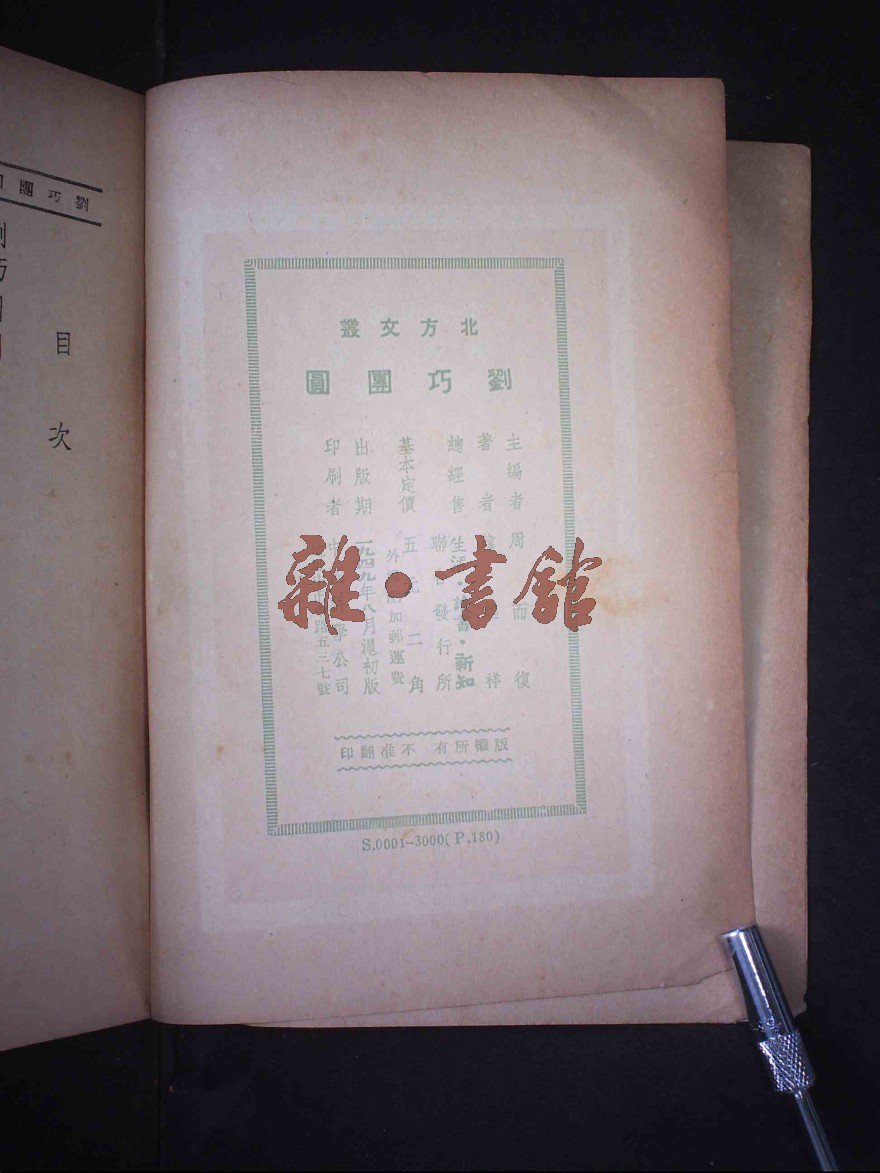 劉巧團
目次
北方文叢
劉巧團圓
主編者 周而復
著者 祥
總經售 生活·讀書·新知
聯 發行所
基本定價 五元二角
外 加郵運費
出版期 一九四九年八月滬初版
印刷者 中 公司
路五三七號
版權所有 不准翻印
S.0001-3000(P.180)
雜·書館